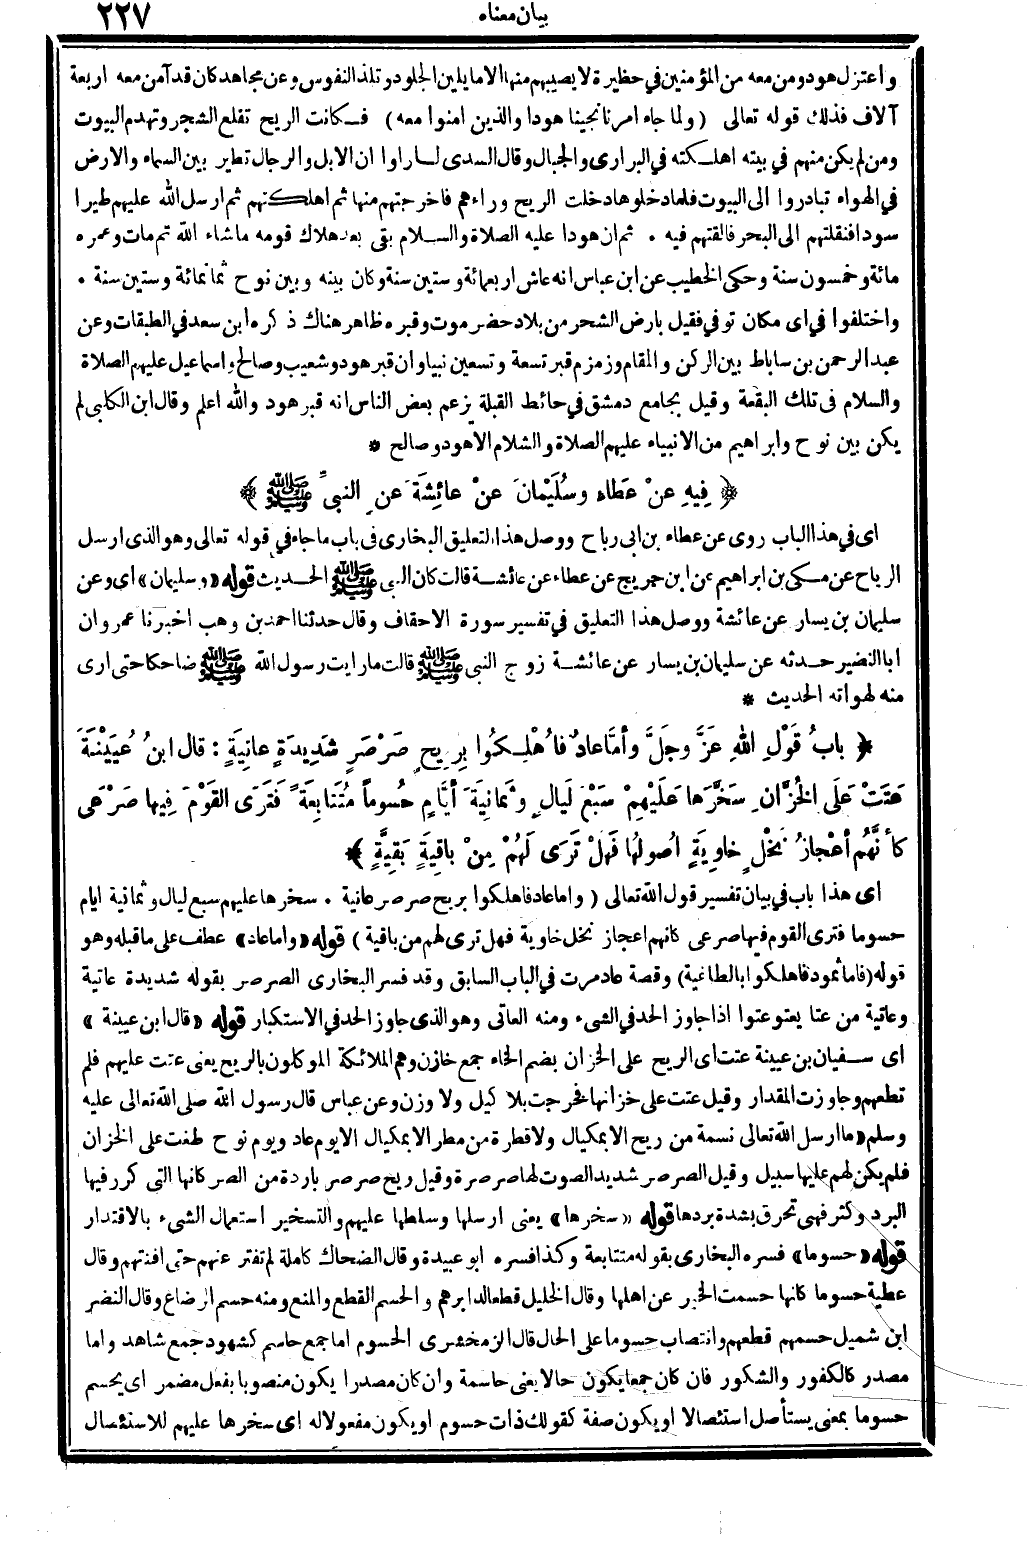 بيان معناه ٢٢٧
واعتزل هود ومن معه من المؤمنين في حظيرة لا يصيبهم منها الا ما يلين الجلود وتلذ النفوس وعن مجاهد كان قد آمن معه اربعة
آلاف فذلك قوله تعالى (ولما جاء امرنا نجينا هودا والذين امنوا معه) فكانت الريح تقلع الشجر وتهدم البيوت
ومن لم يكن منهم في بيته اهلكته في البرارى والجبال وقال السدى لما راوا ان الابل والرجال تطير بين السماء والارض
في الهواء تبادروا الى البيوت فلما دخلوها دخلت الريح وراءهم فاخرجتهم منها ثم اهلكتهم ثم ارسل الله عليهم طيرا
سودا فنقلتهم الى البحر فالقتهم فيه . ثم ان هودا عليه الصلاة والسلام بقى بعد هلاك قومه ما شاء الله ثم مات وعمره
مائة وخمسون سنة وحكى الخطيب عن ابن عباس انه عاش اربعمائة وستين سنة وكان بينه وبين نوح ثمانمائة وستين سنة .
واختلفوا في اى مكان توفي فقيل بارض الشحر من بلاد حضرموت وقبره ظاهر هناك ذكره ابن سعد في الطبقات وعن
عبد الرحمن بن ساباط بين الركن والمقام وزمزم قبر تسعة وتسعين نبيا وان قبر هود وشعيب وصالح واسماعيل عليهم الصلاة
والسلام فى تلك البقعة وقيل بجامع دمشق في حائط القبلة يزعم بعض الناس انه قبر هود والله اعلم وقال ابن الكلبى لم
يكن بين نوح وابراهيم من الانبياء عليهم الصلاة والشلام الا هود وصالح *
﴿ فِيهِ عنْ عَطاءِ وسُلَيْمانَ عنْ عائِشَةَ عنِ النبىِّ ﷺ ﴾
اى في هذا الباب روى عن عطاء بن ابى رباح ووصل هذا التعليق البخارى فى باب ما جاء في قوله تعالى وهو الذى ارسل
الرياح عن مكى بن ابراهيم عن ابن جريج عن عطاء عن عائشة قالت كان النبى ﷺ الحديث قوله «وسليمان» اى وعن
سليمان بن يسار عن عائشة ووصل هذا التعليق في تفسير سورة الاحقاف وقال حدثنا احمد بن وهب اخبرنا عمرو ان
ابا النضير حدثه عن سليمان بن يسار عن عائشة زوج النبى ﷺ قالت ما رايت رسول الله ﷺ ضاحكا حتى ارى
منه لهواته الحديث *
﴿ بابُ قَوْلِ اللهِ عزَّ وجَلَّ وأمَّا عادٌ فاُهْلِكُوا بِرِيحٍ صَرْصَرٍ شَدِيدَةٍ عاتِيَةٍ : قال ابنُ عُيَيْنَةَ
عَتَتْ عَلَى الخُزَّانِ سَخَّرَها عَلَيْهِمْ سَبْعَ لَيالٍ وثَمانِيَةَ أيَّامٍ حُسوماً مُتَتابِعَةً فَتَرَى القَوْمَ فِيها صَرْعى
كأنَّهُم أعْجازُ نَخْلٍ خاوِيَةٍ اُصولُها فَهَلْ تَرَى لَهُمْ مِنْ باقِيَةٍ بَقِيَّةٍ ﴾
اى هذا باب في بيان تفسير قول الله تعالى (واما عاد فاهلكوا بريح صرصر عاتية . سخرها عليهم سبع ليال وثمانية ايام
حسوما فترى القوم فيها صرعى كانهم اعجاز نخل خاوية فهل ترى لهم من باقية) قوله «واما عاد» عطف على ما قبله وهو
قوله (فاما ثمود فاهلكوا بالطاغية) وقصة عاد مرت في الباب السابق وقد فسر البخارى الصرصر بقوله شديدة عاتية
وعاتية من عتا يعتو عتوا اذا جاوز الحد في الشىء ومنه العاتى وهو الذى جاوز الحد في الاستكبار قوله «قال ابن عيينة»
اى سفيان بن عيينة عتت اى الريح على الخزان بضم الخاء جمع خازن وهم الملائكة الموكلون بالريح يعنى عتت عليهم فلم
تطعهم وجاوزت المقدار وقيل عتت على خزانها فخرجت بلا كيل ولا وزن وعن عباس قال رسول الله صلى الله تعالى عليه
وسلم «ما ارسل الله تعالى نسمة من ريح الا بمكيال ولا قطرة من مطر الا بمكيال الا يوم عاد ويوم نوح طغت على الخزان
فلم يكن لهم عليها سبيل وقيل الصرصر شديد الصوت لها صرصرة وقيل ريح صرصر باردة من الصر كانها التى كرر فيها
البرد وكثر فهى تحرق بشدة بردها قوله «سخرها» يعنى ارسلها وسلطها عليهم والتسخير استعمال الشىء بالاقتدار
قوله «حسوما» فسره البخارى بقوله متتابعة وكذا فسره ابو عبيدة وقال الضحاك كاملة لم تفتر عنهم حتى افنتهم وقال
عطية حسوما كانها حسمت الخير عن اهلها وقال الخليل قطعا لدابرهم والحسم القطع والمنع ومنه حسم الرضاع وقال النضر
ابن شميل حسمهم قطعهم وانتصاب حسوما على الحال قال الزمخشرى الحسوم اما جمع حاسم كشهود جمع شاهد واما
مصدر كالكفور والشكور فان كان جمعا يكون حالا يعنى حاسمة وان كان مصدرا يكون منصوبا بفعل مضمر اى يحسم
حسوما بمعنى يستأصل استئصالا او يكون صفة كقولك ذات حسوم او يكون مفعولا له اى سخرها عليهم للاستئصال